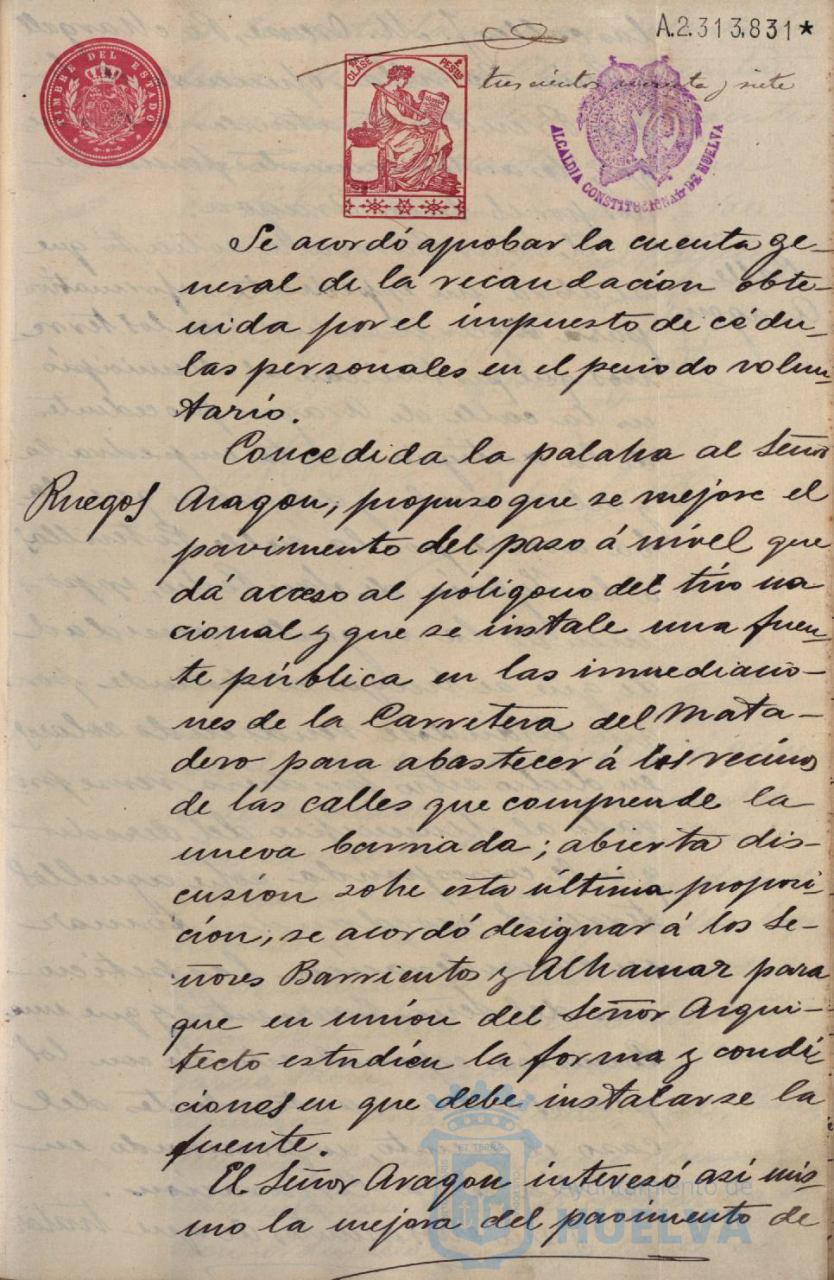 A.2.313.831*
TIMBRE DEL ESTADO
CLASE
PESETAS
trescientos y siete
ALCALDIA CONSTITUCIONAL DE HUELVA
Se acordó aprobar la cuenta ge-
neral de la recaudación obte-
nida por el impuesto de cédu-
las personales en el periodo volun-
tario.
Concedida la palabra al Señor
Ruegos
Aragon, propuso que se mejore el
pavimento del paso á nivel que
dá acceso al póligono del tiro na
cional y que se instale una fuen-
te pública en las inmediacio-
nes de la Carretera del Mata-
dero para abastecer á los vecinos
de las calles que comprende la
nueva barriada; abierta dis-
cusión sobre esta última proposi-
ción, se acordó designar á los Se-
ñores Barrientos y Alhamar para
que en unión del Señor Arqui-
tecto estudien la forma y condi
ciones en que debe instalarse la
fuente.
El Señor Aragon interesó asi mis-
mo la mejora del pavimento de
Ayuntamiento de
HUELVA